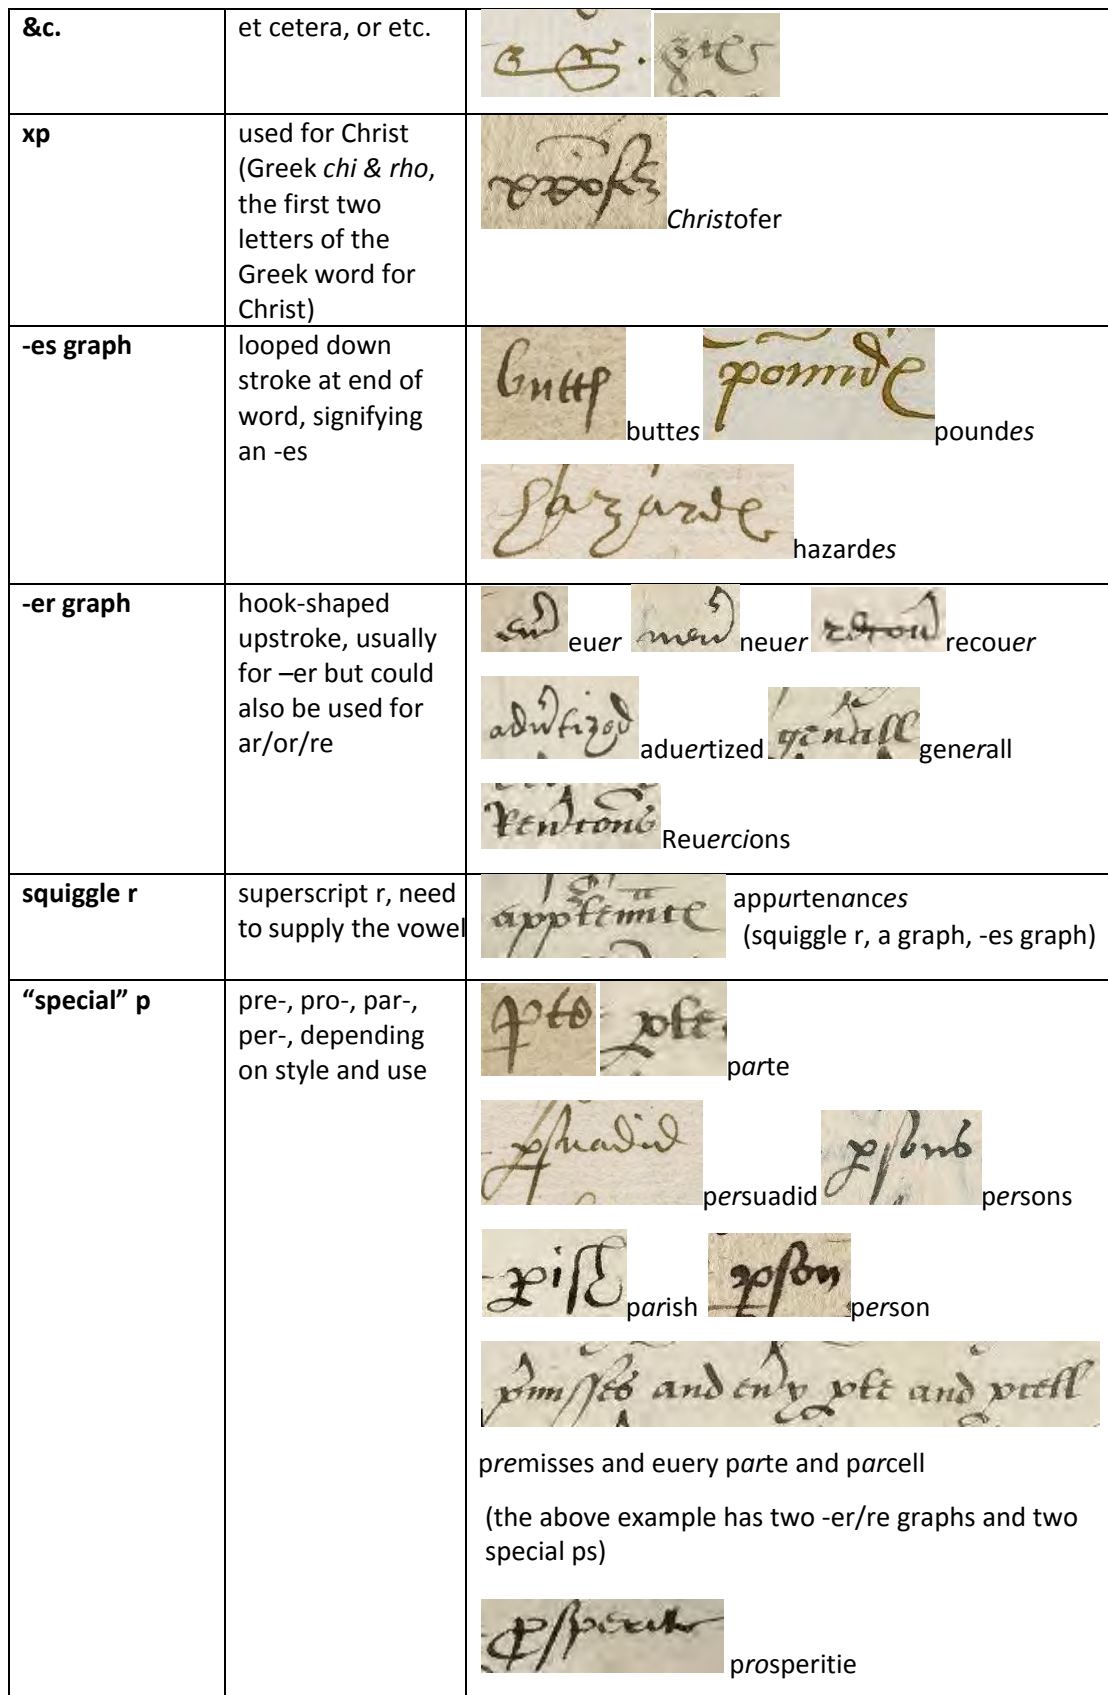 &c. et cetera, or etc.
xp used for Christ
(Greek chi & rho,
the first two
letters of the
Greek word for
Christ)
Christofer
-es graph looped down
stroke at end of
word, signifying
an -es
buttes poundes
hazardes
-er graph hook-shaped
upstroke, usually
for –er but could
also be used for
ar/or/re
euer neuer recouer
aduertized generall
Reuercions
squiggle r superscript r, need
to supply the vowel
appurtenances
(squiggle r, a graph, -es graph)
“special” p pre-, pro-, par-,
per-, depending
on style and use
parte
persuadid persons
parish person
premisses and euery parte and parcell
(the above example has two -er/re graphs and two
special ps)
prosperitie